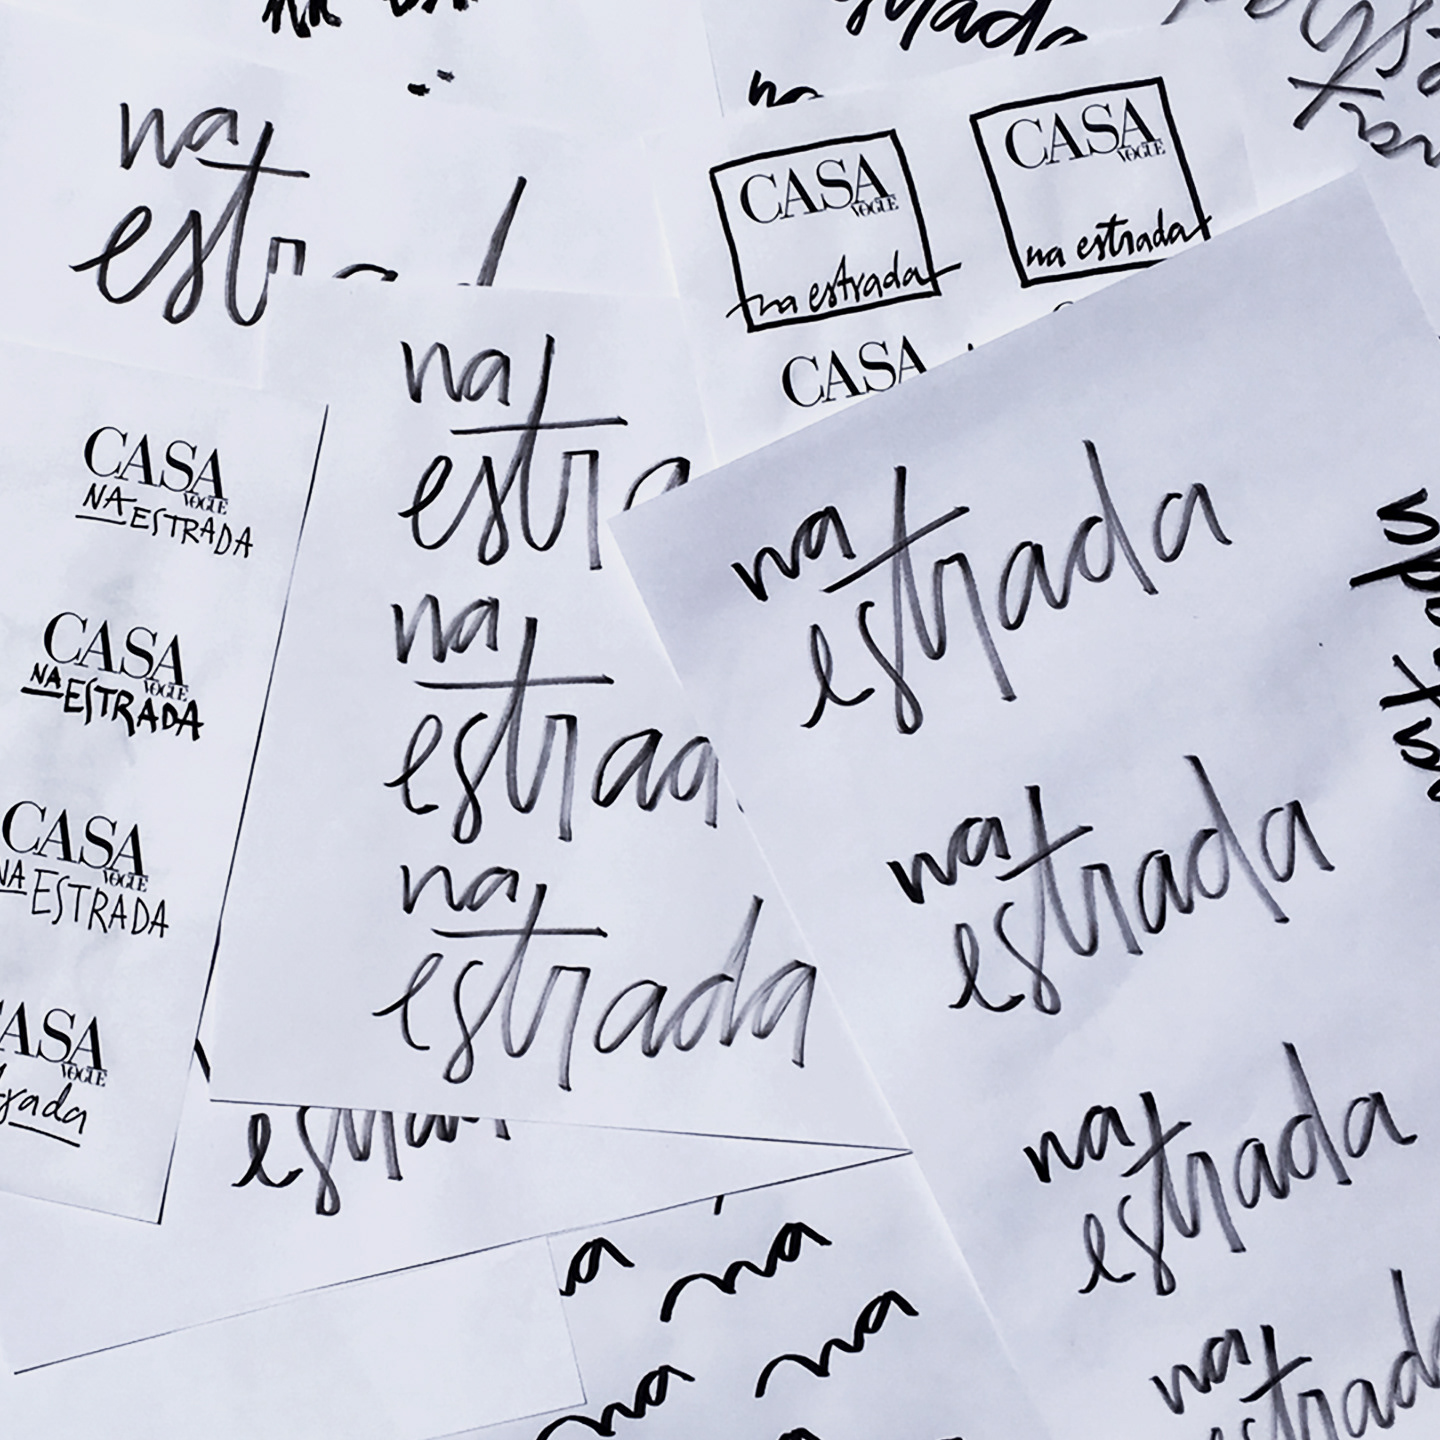 na
estr
CASA
VOGUE
na estrada
CASA
VOGUE
na estrada
CASA
CASA
VOGUE
NA ESTRADA
CASA
VOGUE
NA ESTRADA
CASA
VOGUE
NA ESTRADA
CASA
VOGUE
na
estra
na
estrad
na
estrada
na
estrada
na
estrada
na
estrada
na
estrad
na
na
na